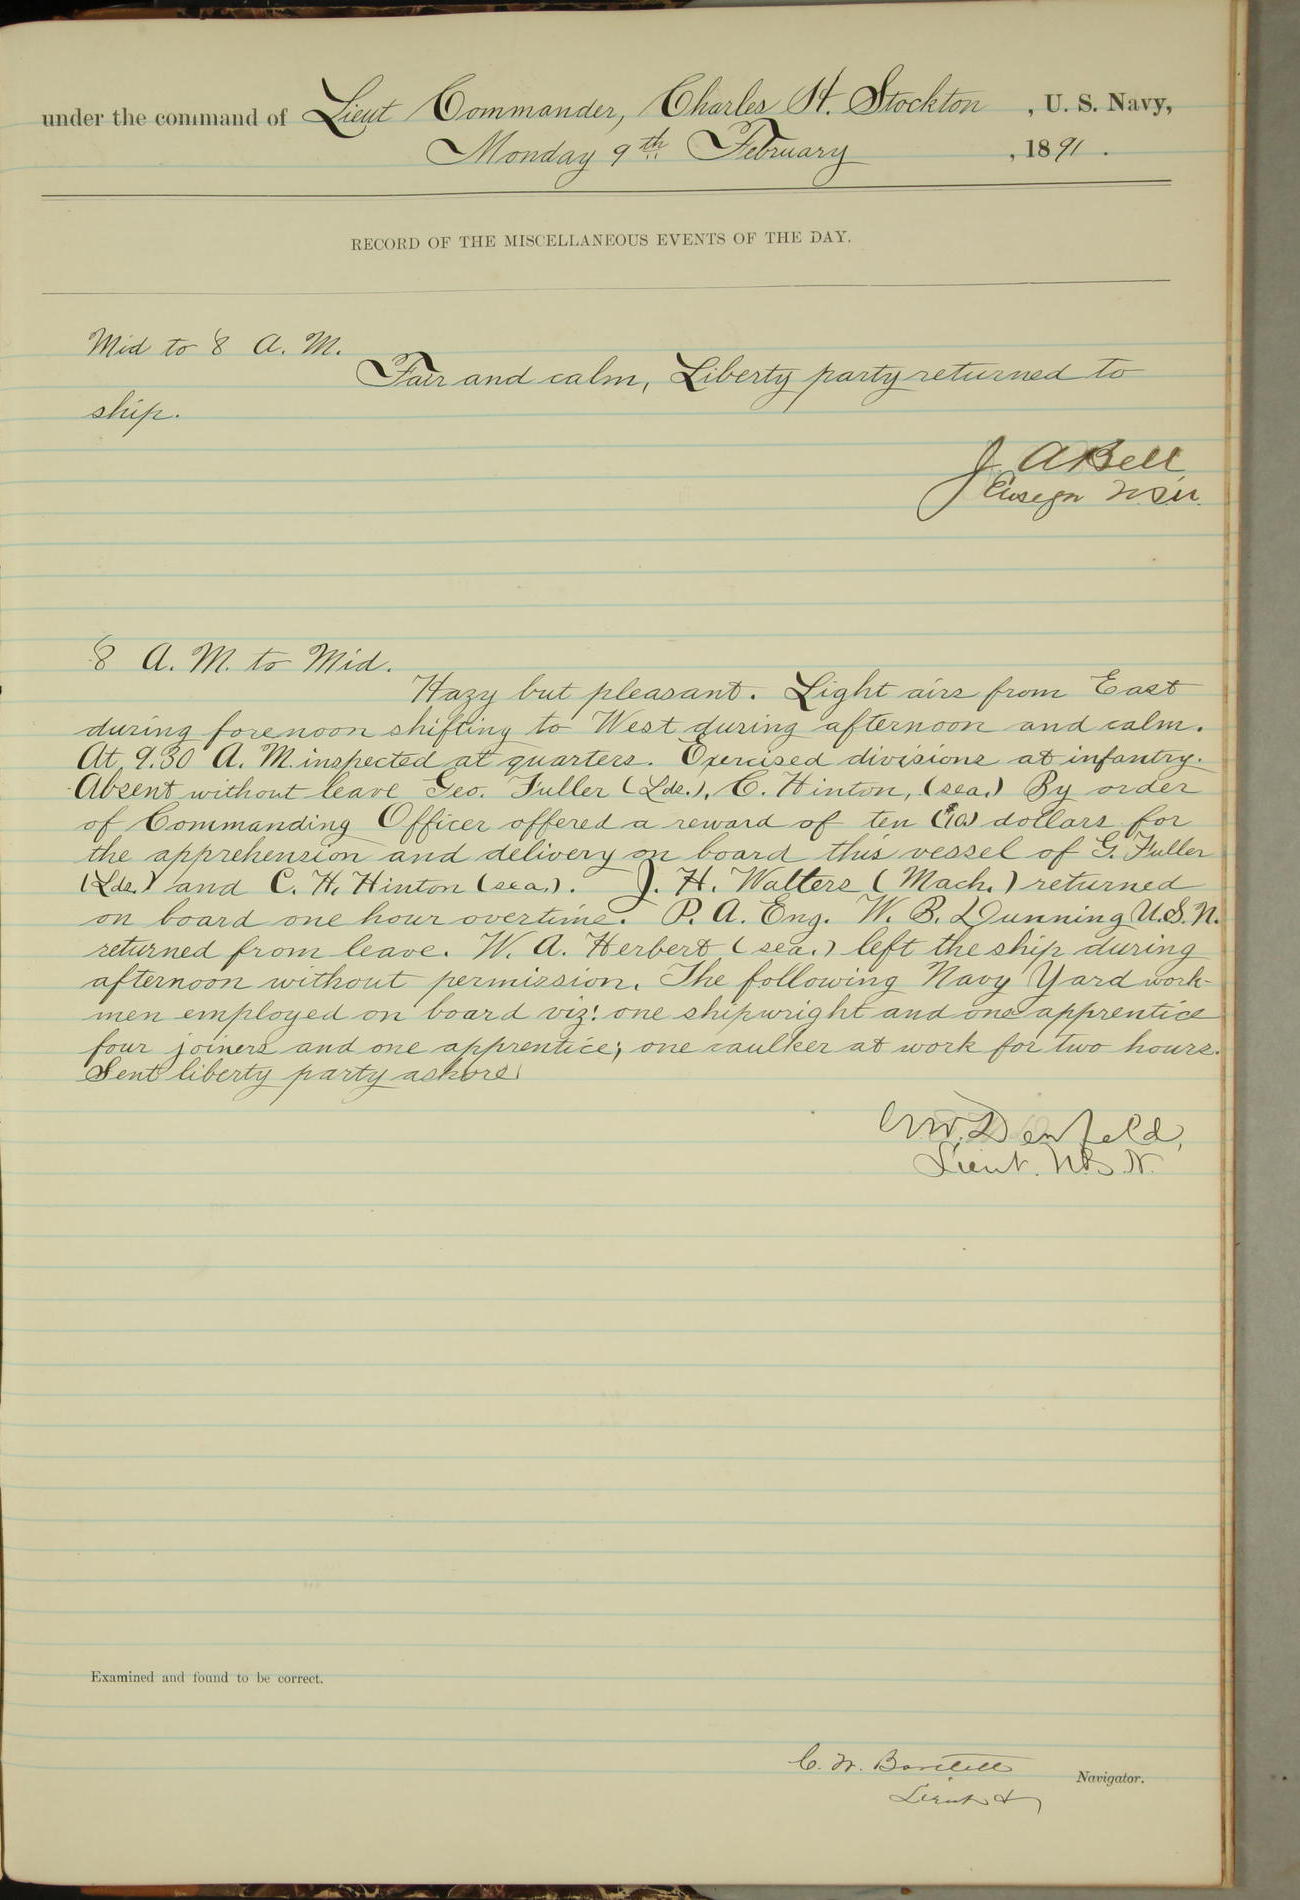 under the command of Lieut Commander, Charles H. Stockton , U. S. Navy,
Monday 9th February , 1891 .
RECORD OF THE MISCELLANEOUS EVENTS OF THE DAY.
Mid to 8 A. M.
Fair and calm, Liberty party returned to
ship.
J. A Bell
Ensign U.S.N.
8 A. M. to Mid.
Hazy but pleasant. Light airs from East
during forenoon shifting to West during afternoon and calm.
At 9.30 A. M. inspected at quarters. Exercised divisions at infantry.
Absent without leave Geo. Fuller (Lds.), C. Hinton, (sea.) By order
of Commanding Officer offered a reward of ten ($10) dollars for
the apprehension and delivery on board this vessel of G. Fuller
(Lds.) and C. H. Hinton (sea.). J. H. Walters (Mach.) returned
on board one hour overtime. P. A. Eng. W. B. Dunning U.S.N.
returned from leave. W. A. Herbert (sea.) left the ship during
afternoon without permission. The following Navy Yard work-
men employed on board viz: one shipwright and one apprentice
four joiners and one apprentice; one caulker at work for two hours.
Sent liberty party ashore
Denfeld,
Lieut. U.S.N.
Examined and found to be correct.
C. W. Bartlett
Lieut
Navigator.